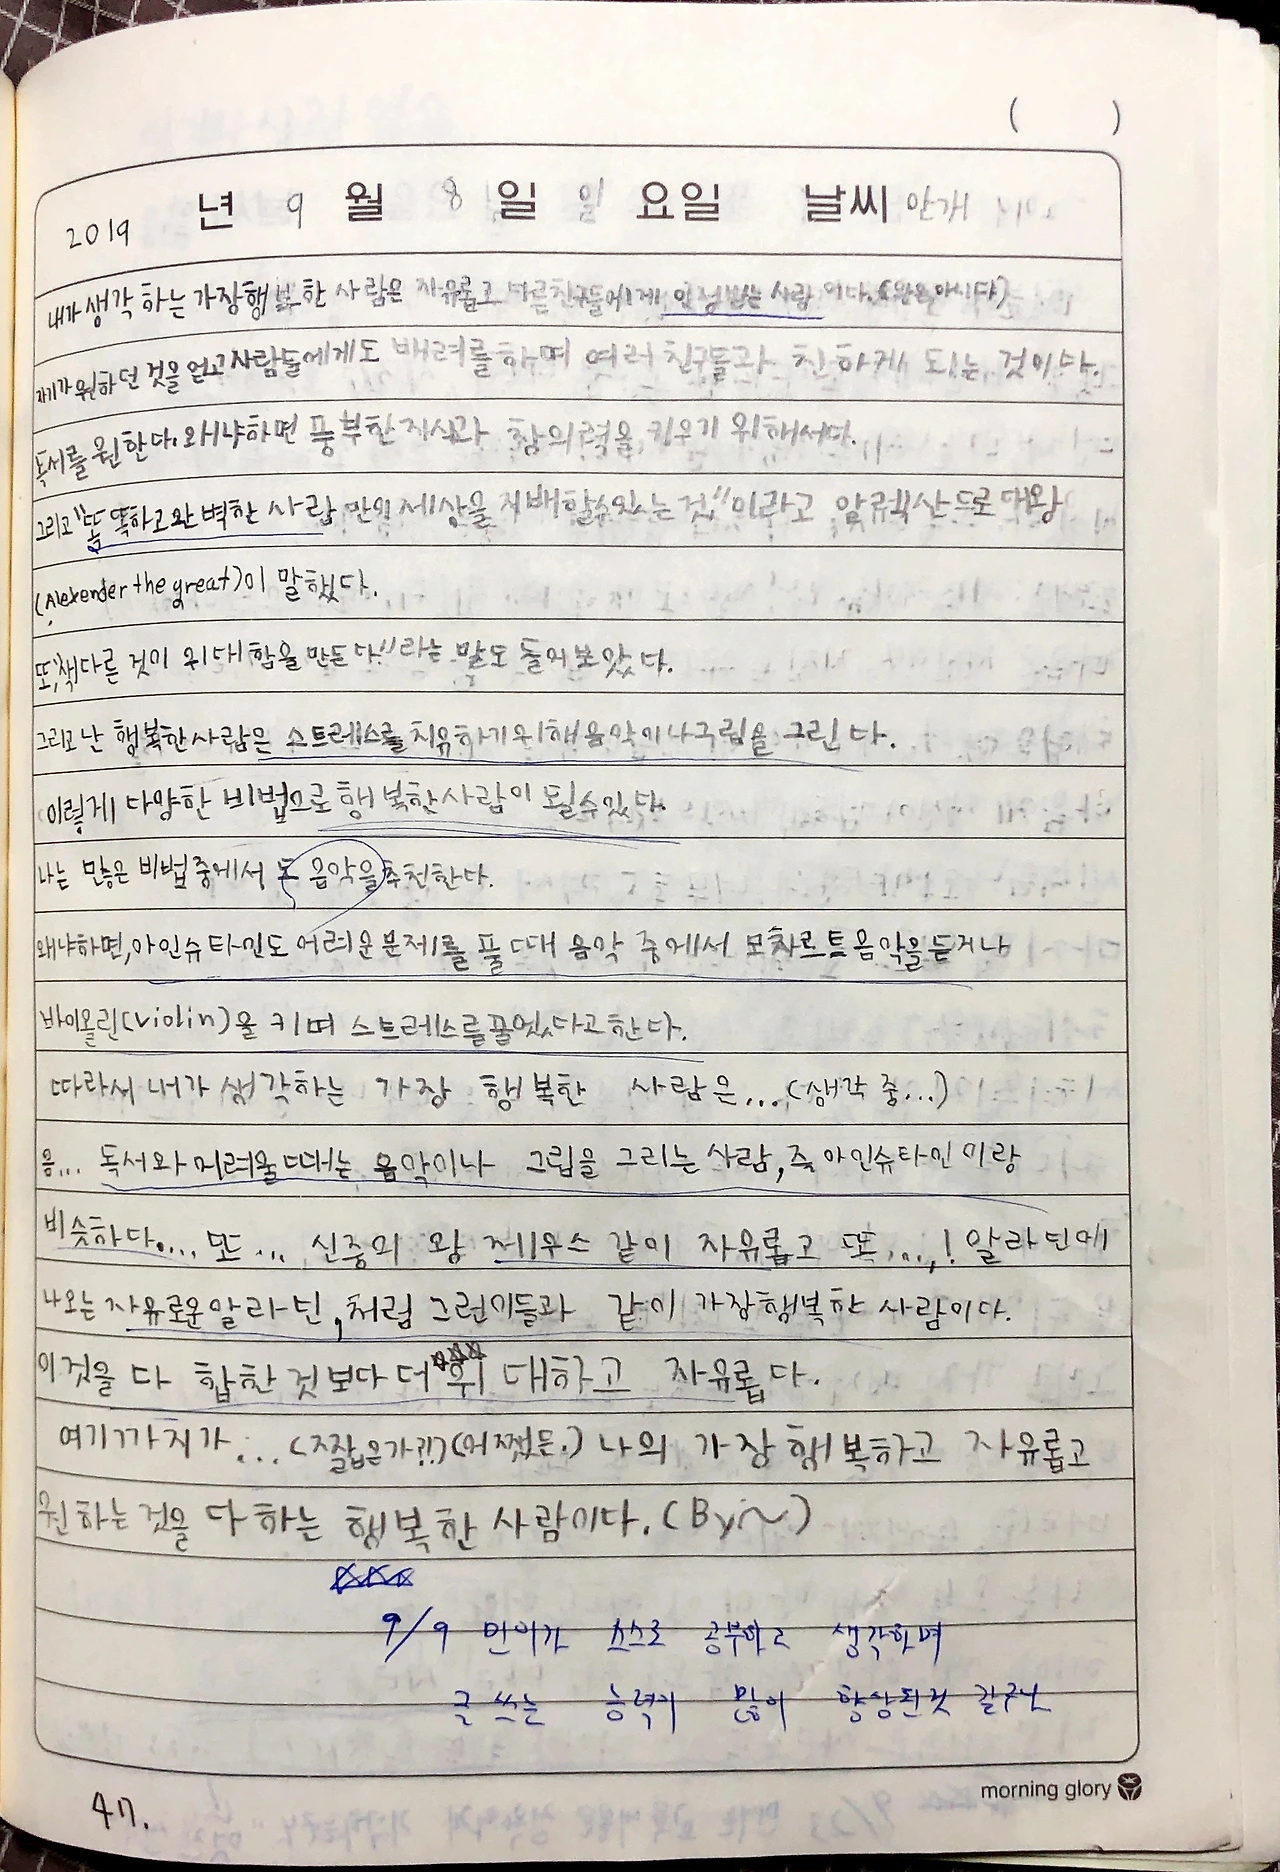 ( )
2019 년 9 월 8 일 일 요일 날씨 안개
내가 생각하는 가장행복한 사람은 자유롭고 다른친구들에게 인정받는 사람 이다.
자기가 원하던 것을 얻고 사람들에게도 배려를 하며 여러 친구들과 친하게 되는 것이다.
독서를 원한다. 왜냐하면 풍부한 지식과 창의력을 키우기 위해서다.
그리고 "똑똑하고 완벽한 사람 만의 세상을 지배할수있는 것"이라고 알렉산드로 대왕
(Alexender the great)이 말했다.
또, 책다른 것이 위대함을 만든다"라는 말도 들어보았다.
그리고 난 행복한 사람은 스트레스를 치유하기위해 음악이나 그림을 그린다.
이렇게 다양한 비법으로 행복한사람이 될수있다.
나는 많은 비법 중에서 음악을 추천한다.
왜냐하면, 아인슈타인도 어려운 문제를 풀 때 음악 중에서 모차르트 음악을 듣거나
바이올린(violin)을 키며 스트레스를 풀었다고한다.
따라서 내가 생각하는 가장 행복한 사람은...(생각 중...)
음... 독서와 어려울 때는 음악이나 그림을 그리는 사람, 즉 아인슈타인 이랑
비슷하다.... 또 ... 신중의 왕 제우스 같이 자유롭고 또...,! 알라딘에
나오는 자유로운 알라딘, 처럼 그런이들과 같이 가장행복한 사람이다.
이것을 다 합한 것보다 더 위대하고 자유롭다.
여기까지가...(짧은가?!?)(어쨌든.) 나의 가장 행복하고 자유롭고
원하는 것을 다 하는 행복한 사람이다.
9/9 민이가 스스로 공부하고 생각하며
글 쓰는 능력이 많이 향상된것 같구나
morning glory
47.